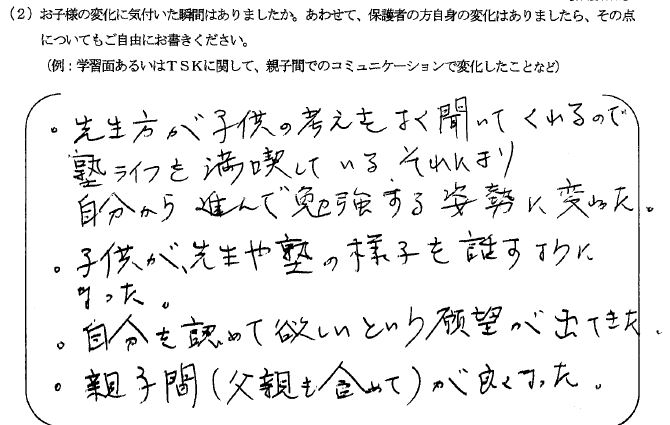 (2) お子様の変化に気付いた瞬間はありましたか。あわせて、保護者の方自身の変化はありましたら、その点
についてもご自由にお書きください。
(例：学習面あるいはTSKに関して、親子間でのコミュニケーションで変化したことなど)
・先生方が子供の考えをよく聞いてくれるので
塾ライフを満喫している それにより
自分から進んで勉強する姿勢に変わった。
・子供が、先生や塾の様子を話すように
なった。
・自分を認めて欲しいという願望が出てきた。
・親子間(父親も含めて)が良くなった。